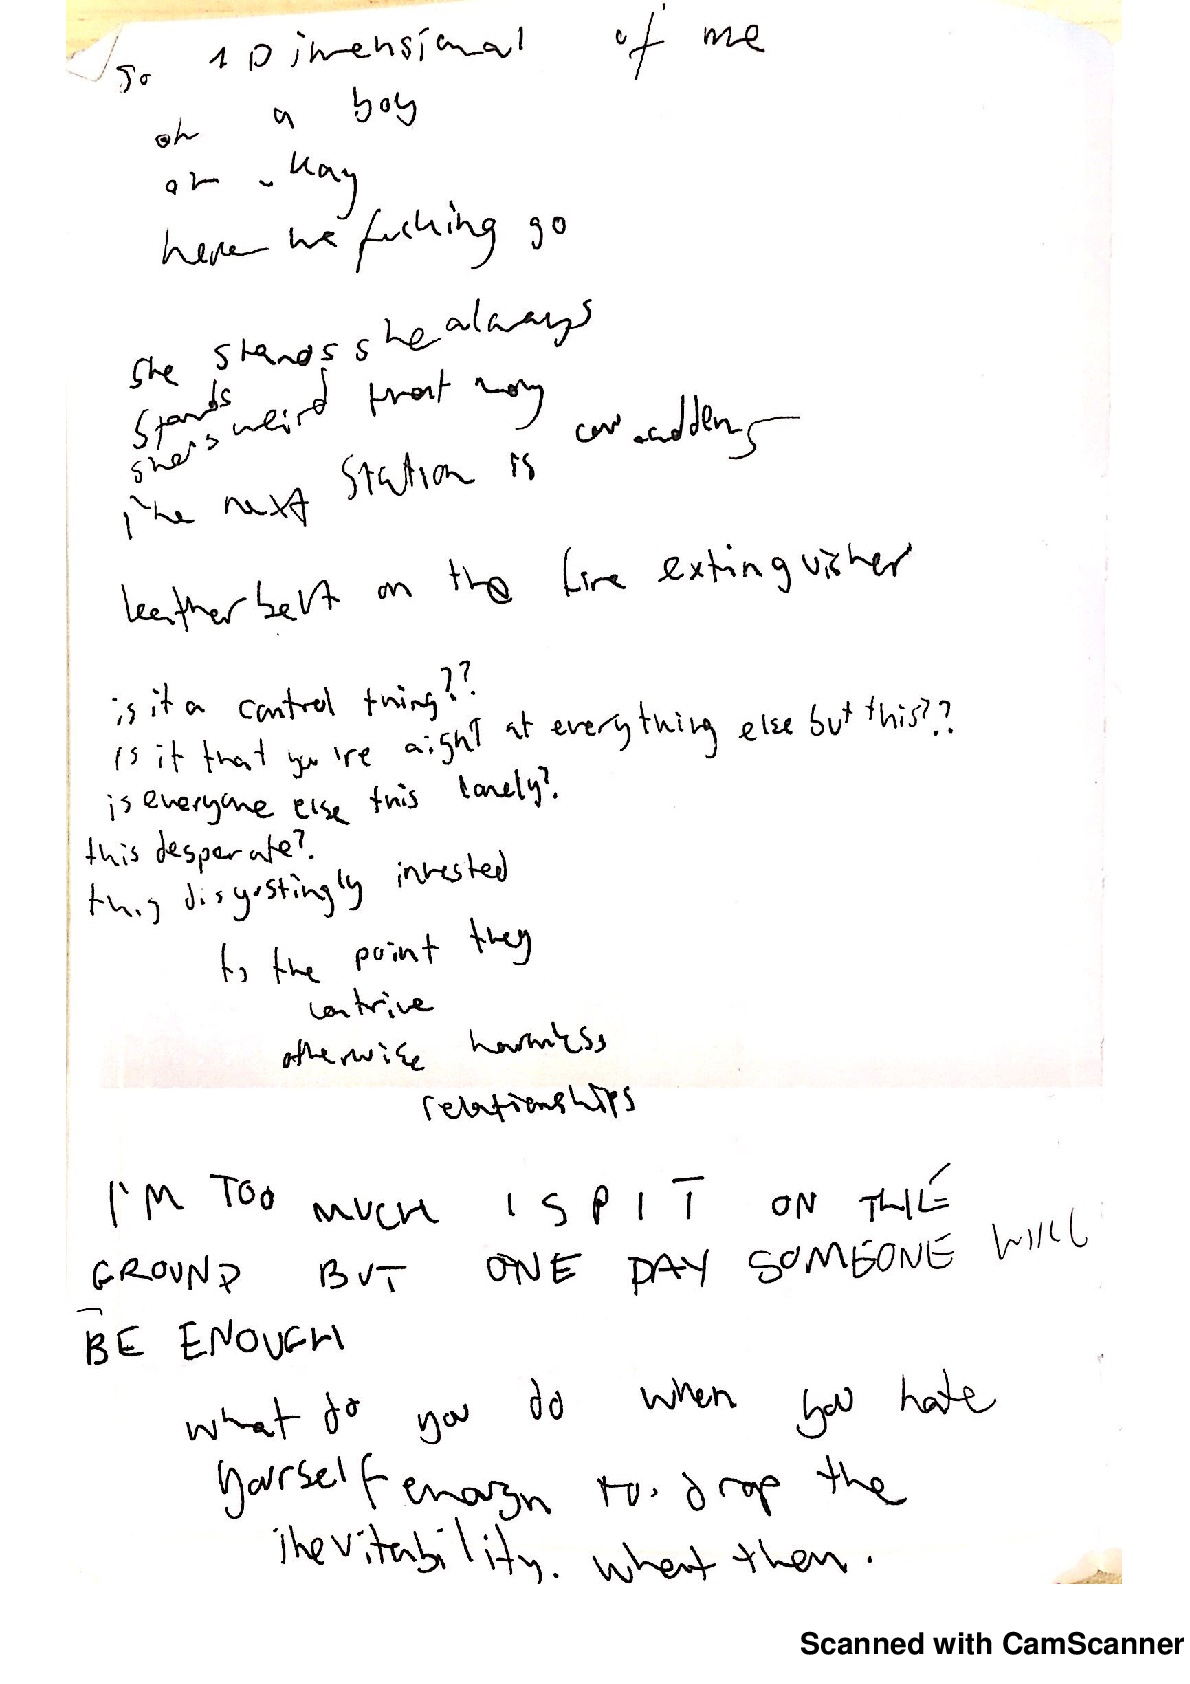 so 1 Dimensional of me
oh a boy
oh - kay
here we fucking go
She stands she always
stands
she's weird that way
the next station is
leather belt on the fire extinguisher
is it a control thing??
is it that you're aight at everything else but this??
is everyone else this lonely?.
this desperate?.
this disgustingly invested
to the point they
contrive
otherwise harmless
relationships
I'M TOO MUCH I SPIT ON THE
GROUND BUT ONE DAY SOMEONE WILL
BE ENOUGH
what do you do when you hate
yourself enough to. drop the
inevitability. what then.
Scanned with CamScanner